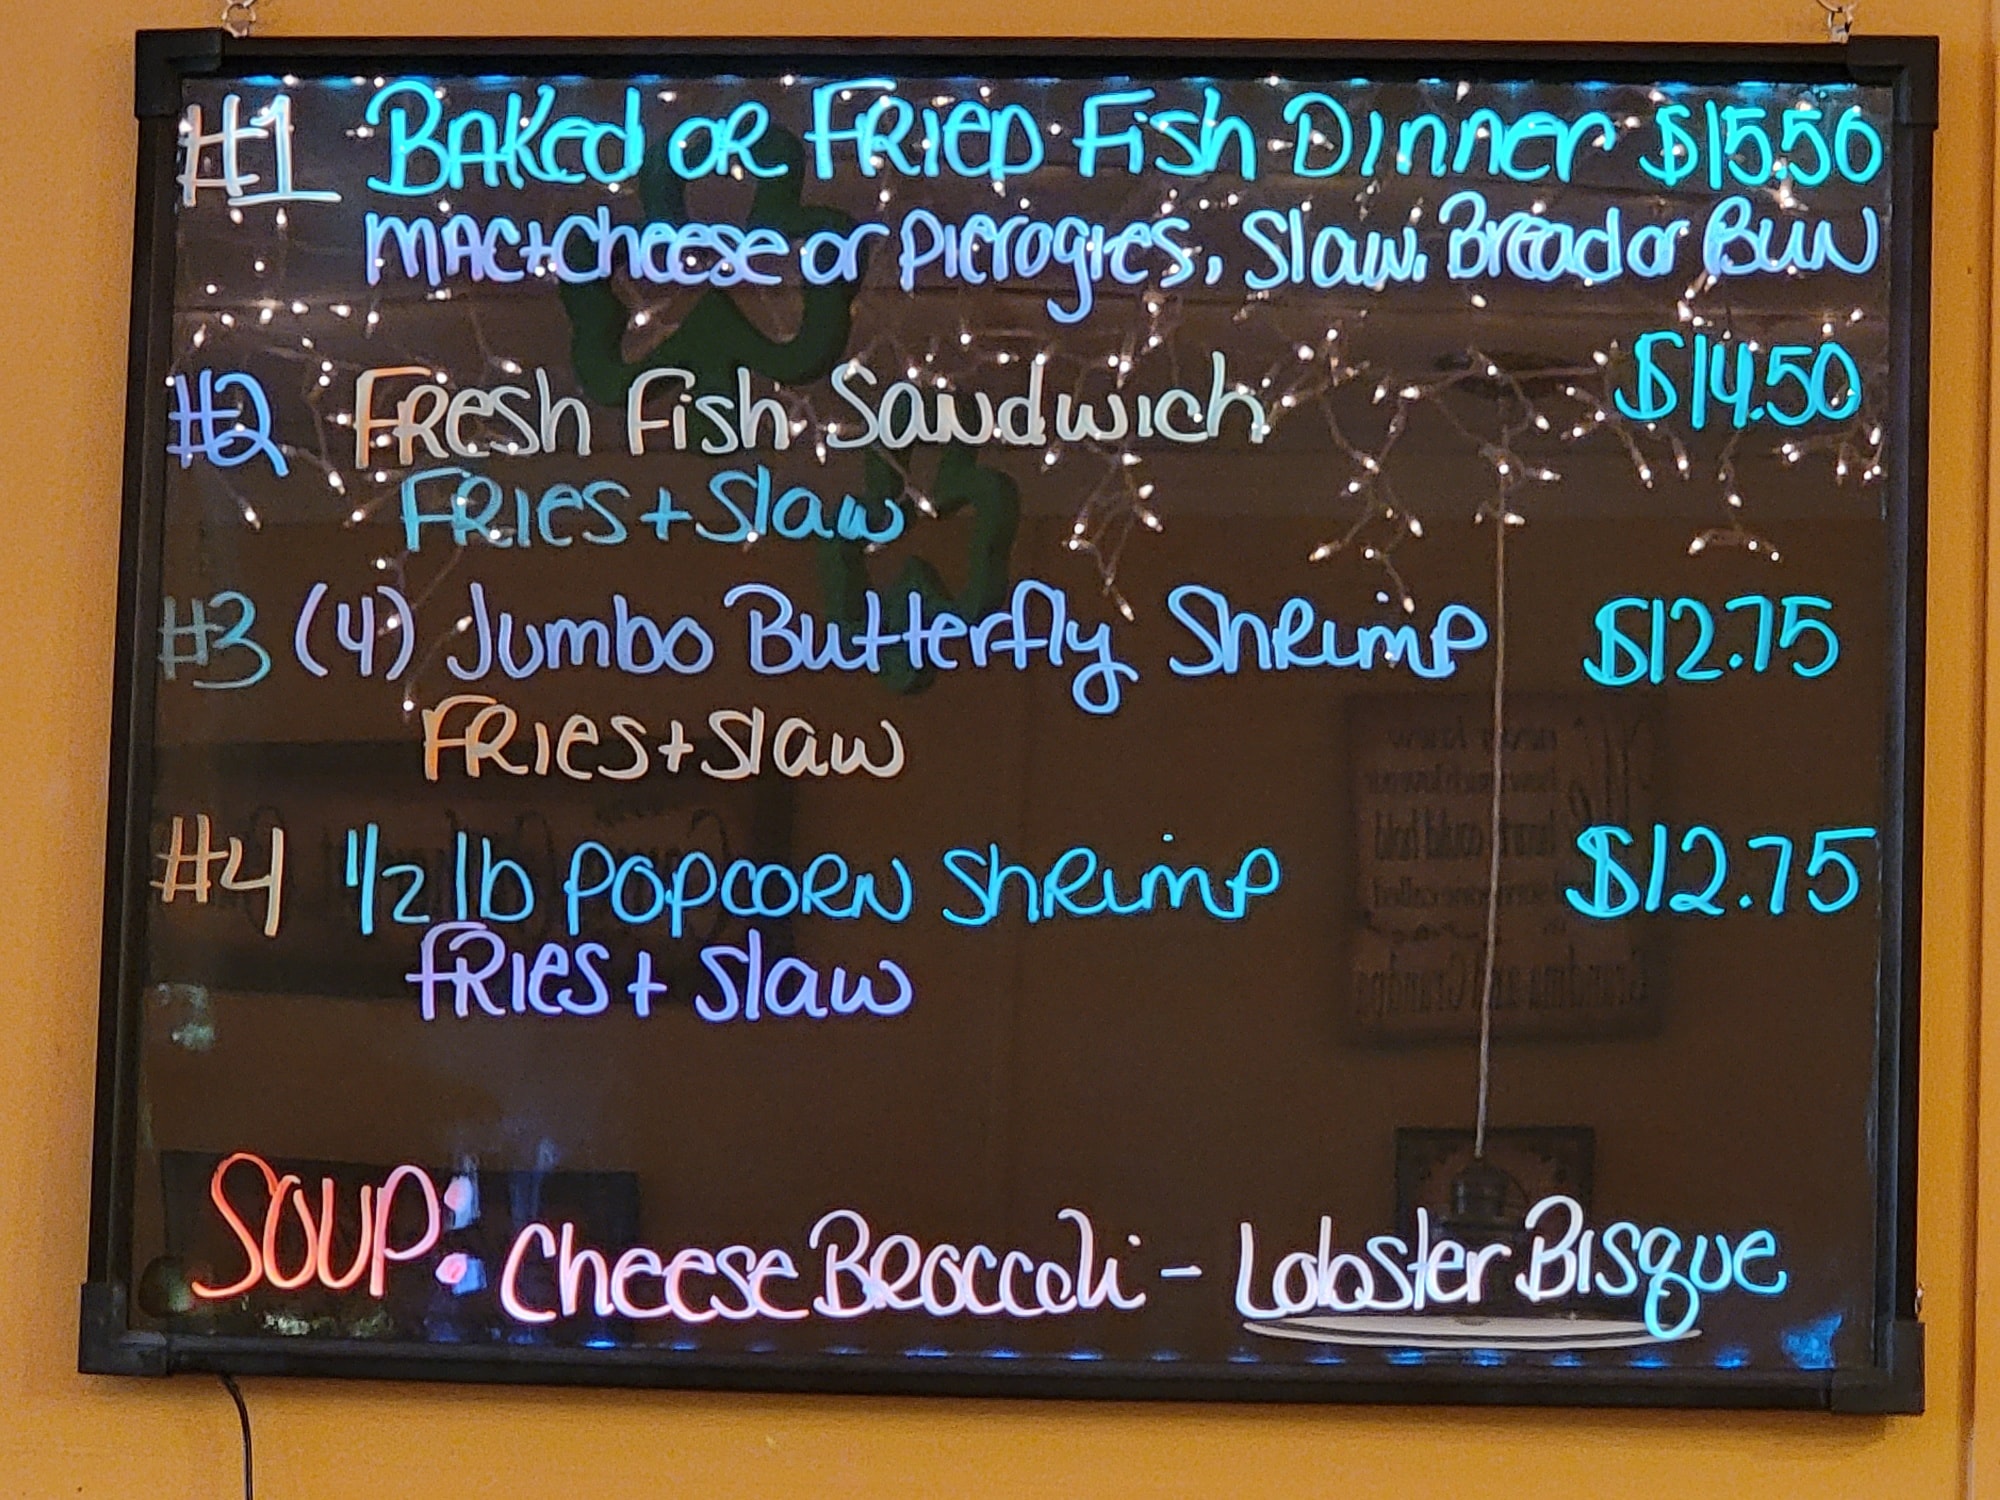 #1 Baked or Fried Fish Dinner $15.50
Mac+Cheese or Pierogies, Slaw, Bread or Bun
#2 Fresh Fish Sandwich $14.50
Fries + Slaw
#3 (4) Jumbo Butterfly Shrimp $12.75
Fries + Slaw
#4 1/2 lb Popcorn Shrimp $12.75
Fries + Slaw
Soup: Cheese Broccoli - Lobster Bisque